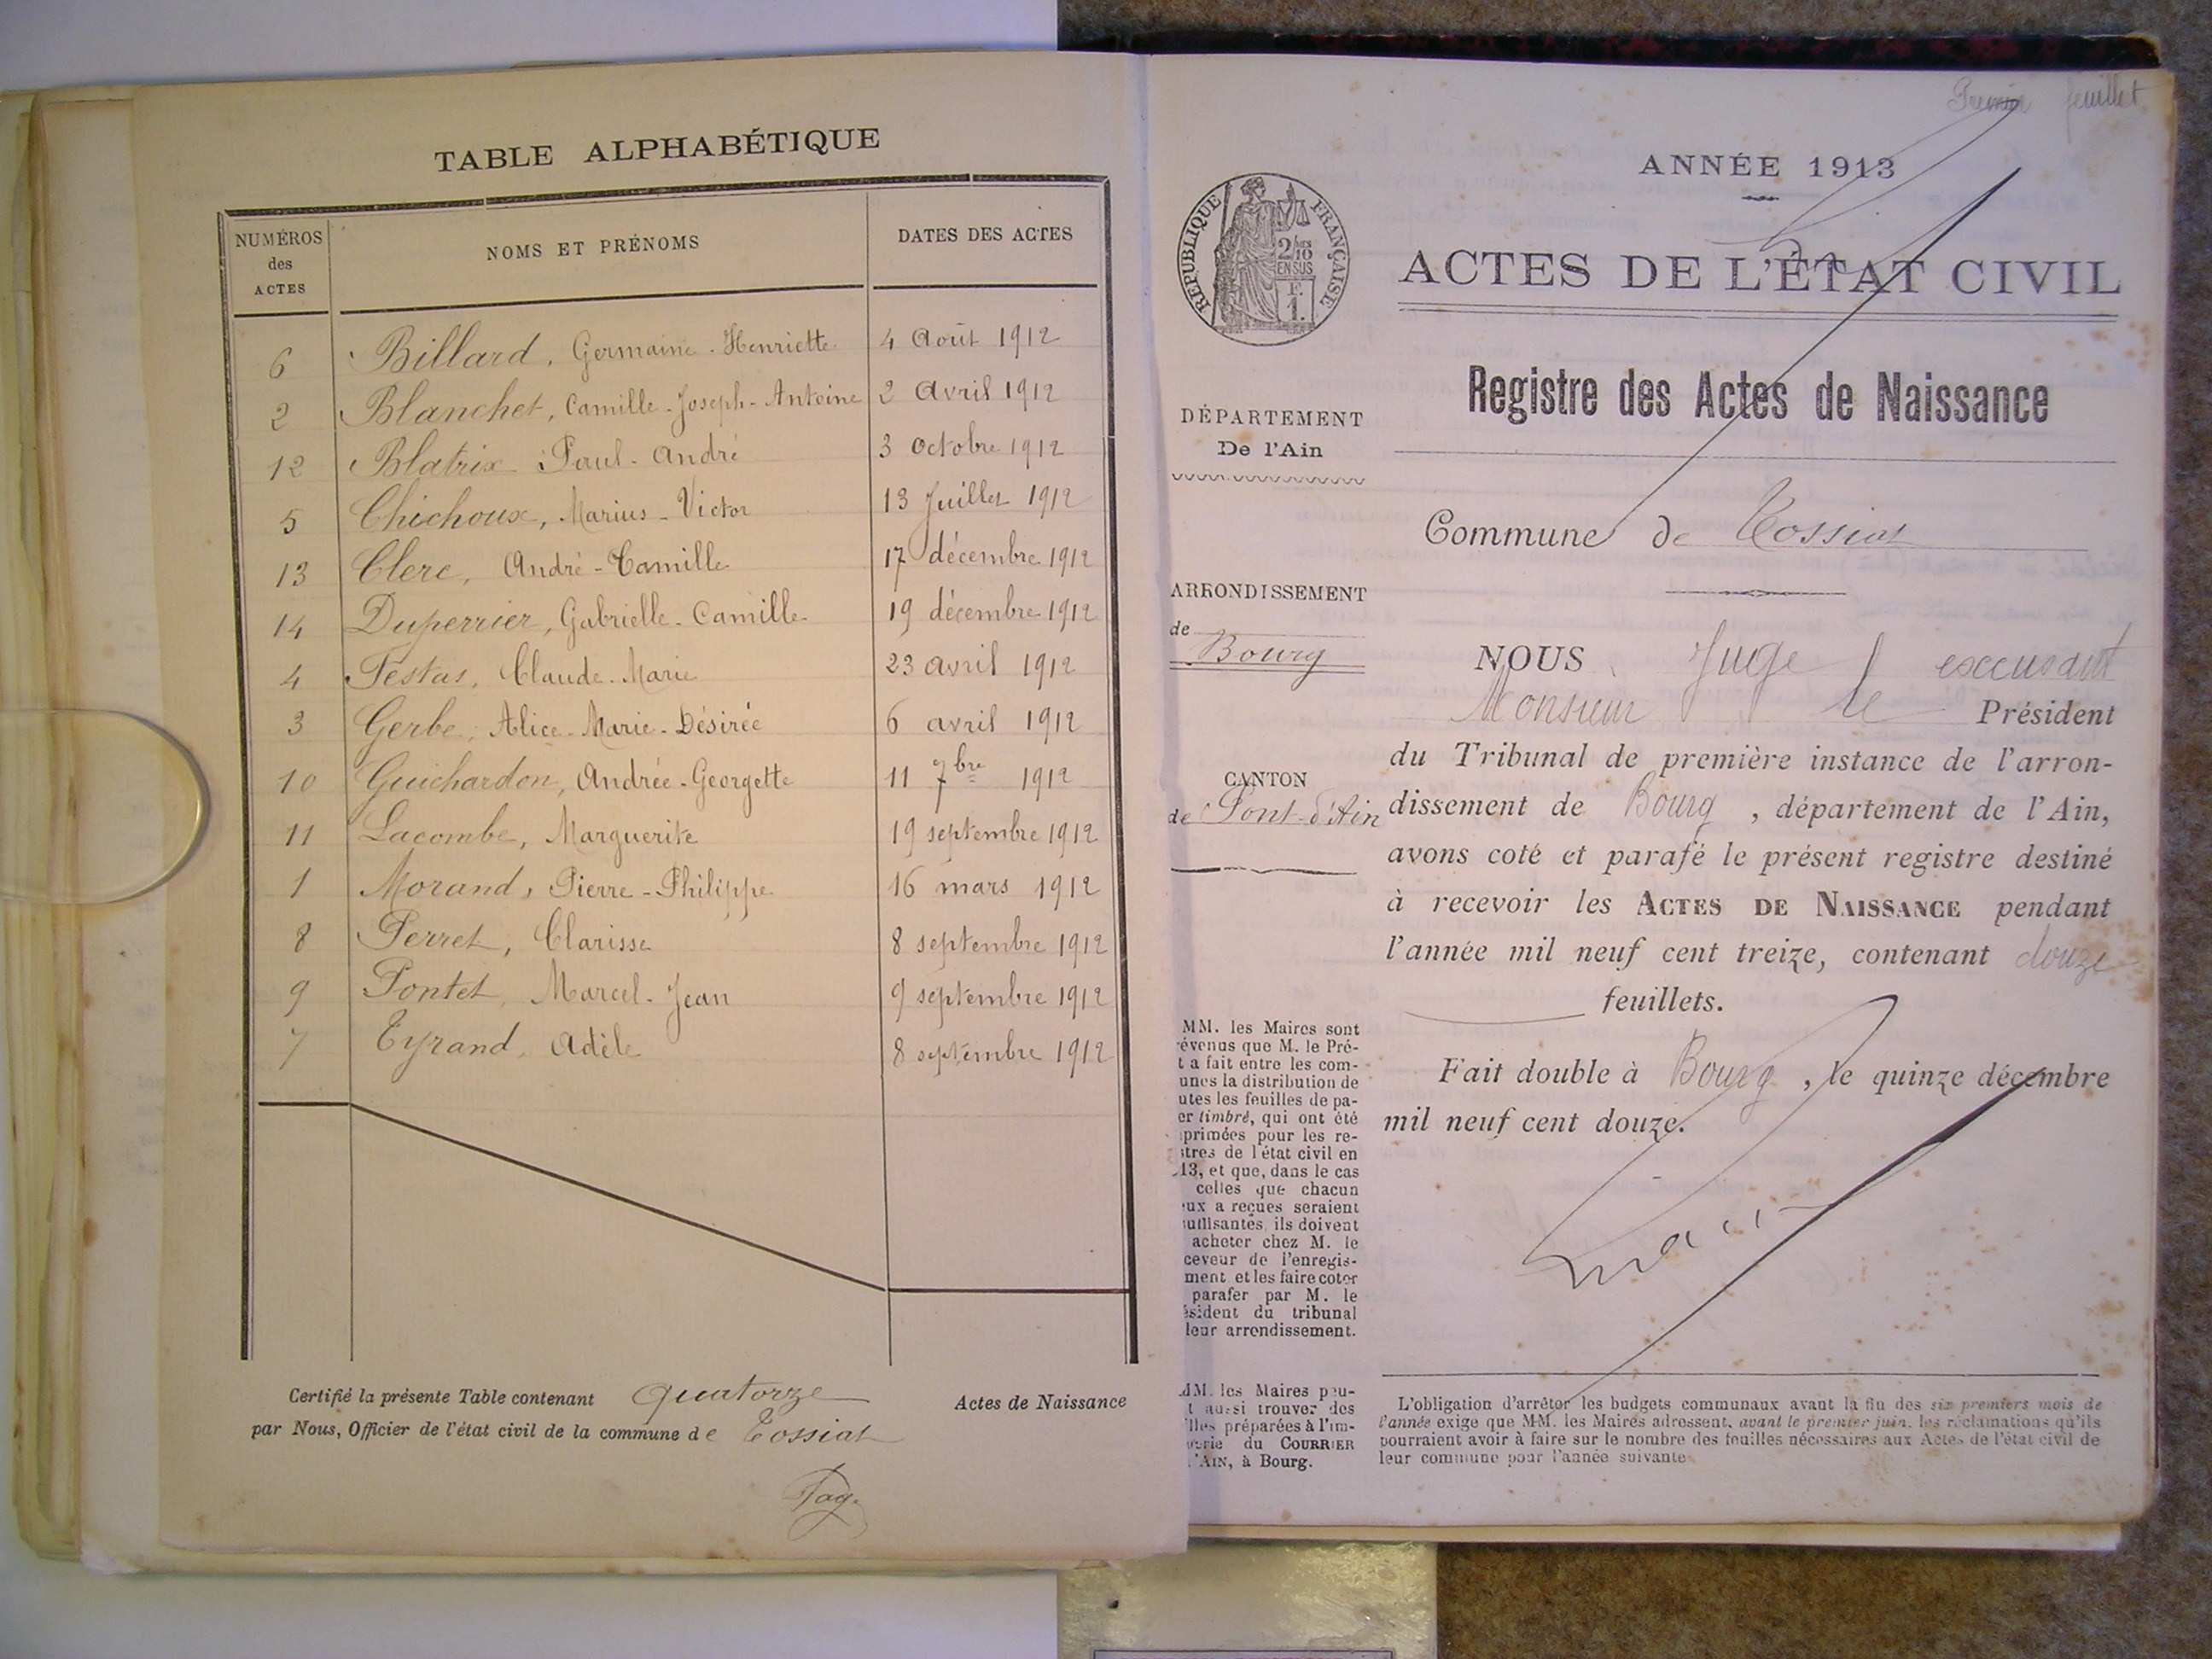 TABLE ALPHABÉTIQUE
NUMÉROS des ACTES
NOMS ET PRÉNOMS
DATES DES ACTES
6 Billard, Germaine-Henriette 4 Août 1912
2 Blanchet, Camille-Joseph-Antoine 2 Avril 1912
12 Blatrix Paul-André 3 Octobre 1912
5 Chichoux, Marius-Victor 13 Juillet 1912
13 Clerc, André-Camille 17 décembre 1912
14 Duperrier, Gabrielle-Camille 19 décembre 1912
4 Festas, Claude-Marie 23 avril 1912
3 Gerbe, Alice-Marie-Désirée 6 avril 1912
10 Guichardon, Andrée-Georgette 11 7bre 1912
11 Lacombe, Marguerite 19 septembre 1912
1 Morand, Pierre-Philippe 16 mars 1912
8 Perret, Clarisse 8 septembre 1912
9 Pontet, Marcel-Jean 9 septembre 1912
7 Tyrand, Adèle 8 septembre 1912
Certifié la présente Table contenant quatorze Actes de Naissance
par Nous, Officier de l'état civil de la commune de Tossiat
Premier feuillet
ANNÉE 1913
RÉPUBLIQUE FRANÇAISE
2/10
EN SUS
F.
1.
ACTES DE L'ÉTAT CIVIL
Registre des Actes de Naissance
DÉPARTEMENT
De l'Ain
Commune de Tossiat
ARRONDISSEMENT
de Bourg
CANTON
de Pont-d'Ain
NOUS Juge excusant
Monsieur le Président
du Tribunal de première instance de l'arron-
dissement de Bourg, département de l'Ain,
avons coté et parafé le présent registre destiné
à recevoir les ACTES DE NAISSANCE pendant
l'année mil neuf cent treize, contenant douze
feuillets.
Fait double à Bourg, le quinze décembre
mil neuf cent douze.
MM. les Maires sont
évenus que M. le Pré-
t a fait entre les com-
unes la distribution de
utes les feuilles de pa-
er timbré, qui ont été
primées pour les re-
itres de l'état civil en
13, et que, dans le cas
celles que chacun
ux a reçues seraient
uffisantes, ils doivent
acheter chez M. le
ceveur de l'enregis-
ment et les faire coter
parafer par M. le
ésident du tribunal
leur arrondissement.
MM. les Maires peu-
t aussi trouver des
illes préparées à l'im-
erie du COURRIER
l'AIN, à Bourg.
L'obligation d'arrêter les budgets communaux avant la fin des six premiers mois de
l'année exige que MM. les Maires adressent, avant le premier juin, les réclamations qu'ils
pourraient avoir à faire sur le nombre des feuilles nécessaires aux Actes de l'état civil de
leur commune pour l'année suivante